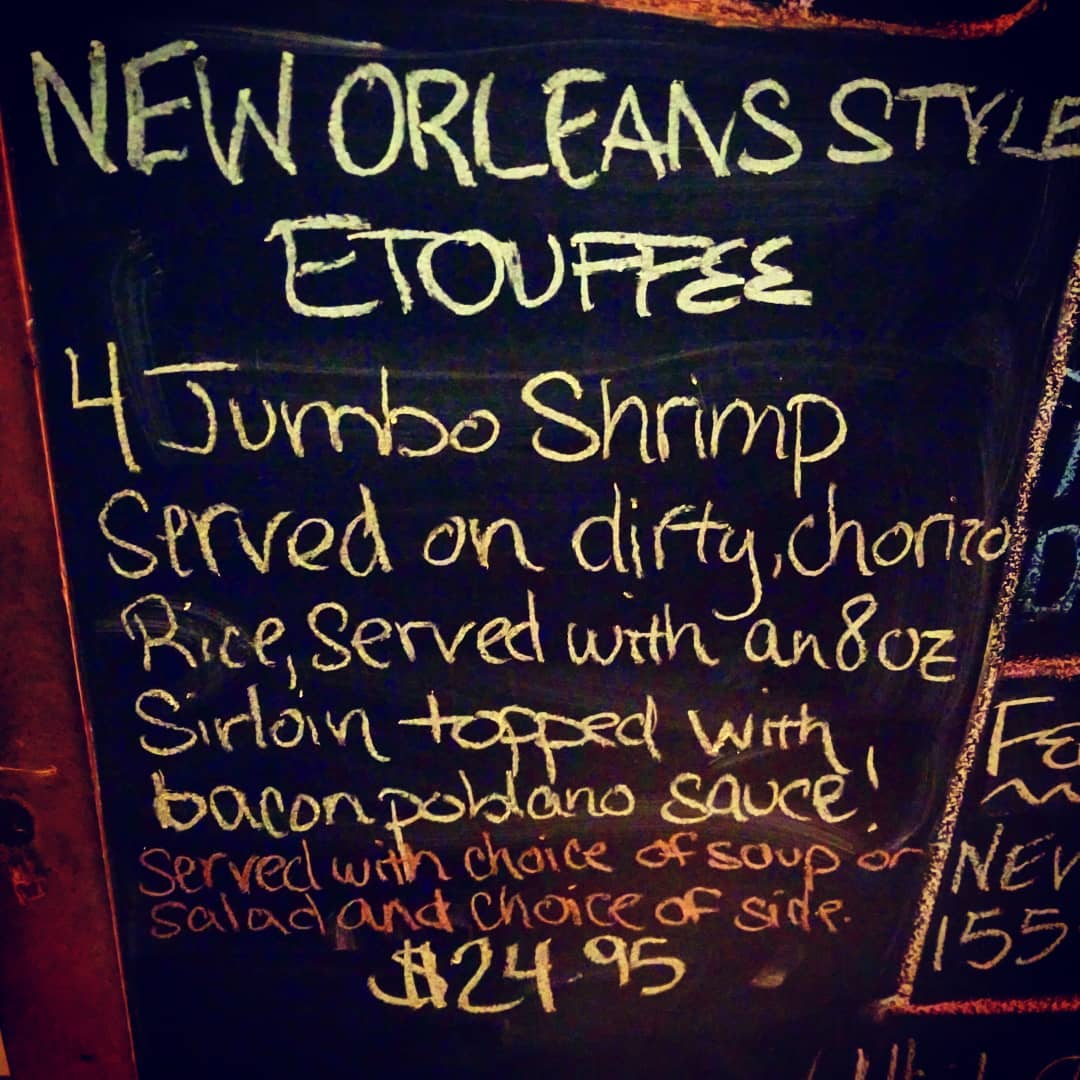 NEW ORLEANS STYLE
ETOUFFEE
4 Jumbo Shrimp
Served on dirty, chorizo
Rice, Served with an 8oz
Sirloin topped with
bacon poblano sauce!
Served with choice of soup or
salad and choice of side.
$24.95
NEW
155